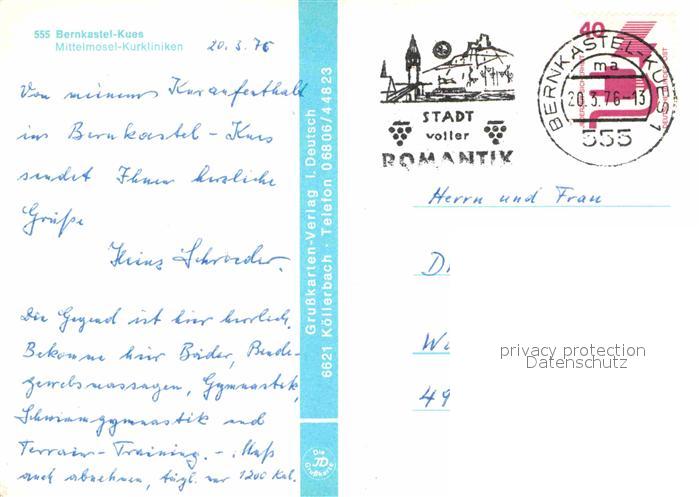 555 Bernkastel-Kues
Mittelmosel-Kurkliniken
20.3.76
Von meinem Kuraufenthalt
in Bernkastel-Kues
sendet Ihnen herzliche
Grüße
Heinz Schroeder.
Die Gegend ist hier herrlich.
Bekomme hier Bäder, Binde-
gewebsmassagen, Gymnastik,
Schwimmgymnastik und
Terrain-Training. - Muß
auch abnehmen, tägl. nur 1200 Kal.
Grußkarten-Verlag I. Deutsch
6621 Köllerbach · Telefon 06806/44823
Die
JD
Grußkarte
STADT
voller
ROMANTIK
40
BERNKASTEL-KUES 1
ma
20.3.76-13
555
Herrn und Frau
D
W
49
privacy protection
Datenschutz